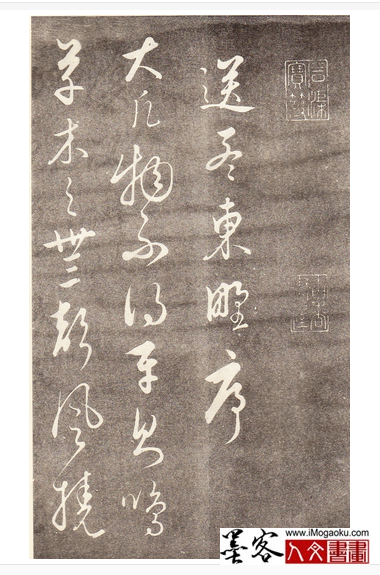 送孟東野序
大凡物不得平則鳴
草木之無聲風撓
www.iMogaoku.com
墨客